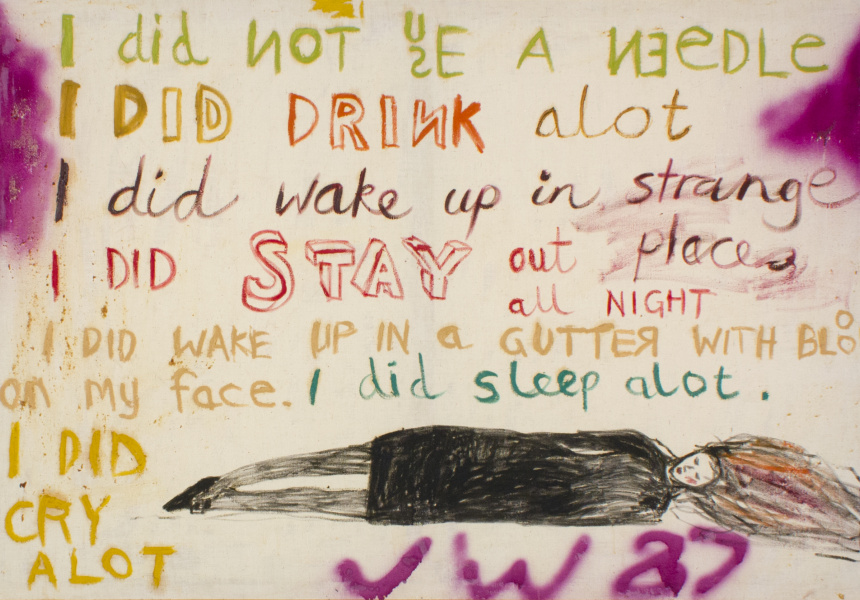 I did NOT USE A NEEDLE
I DID DRINK alot
I did wake up in strange
places
I DID STAY out
all NIGHT
I DID WAKE UP IN a GUTTER WITH BLOO
on my face. I did sleep alot.
I DID
CRY
ALOT